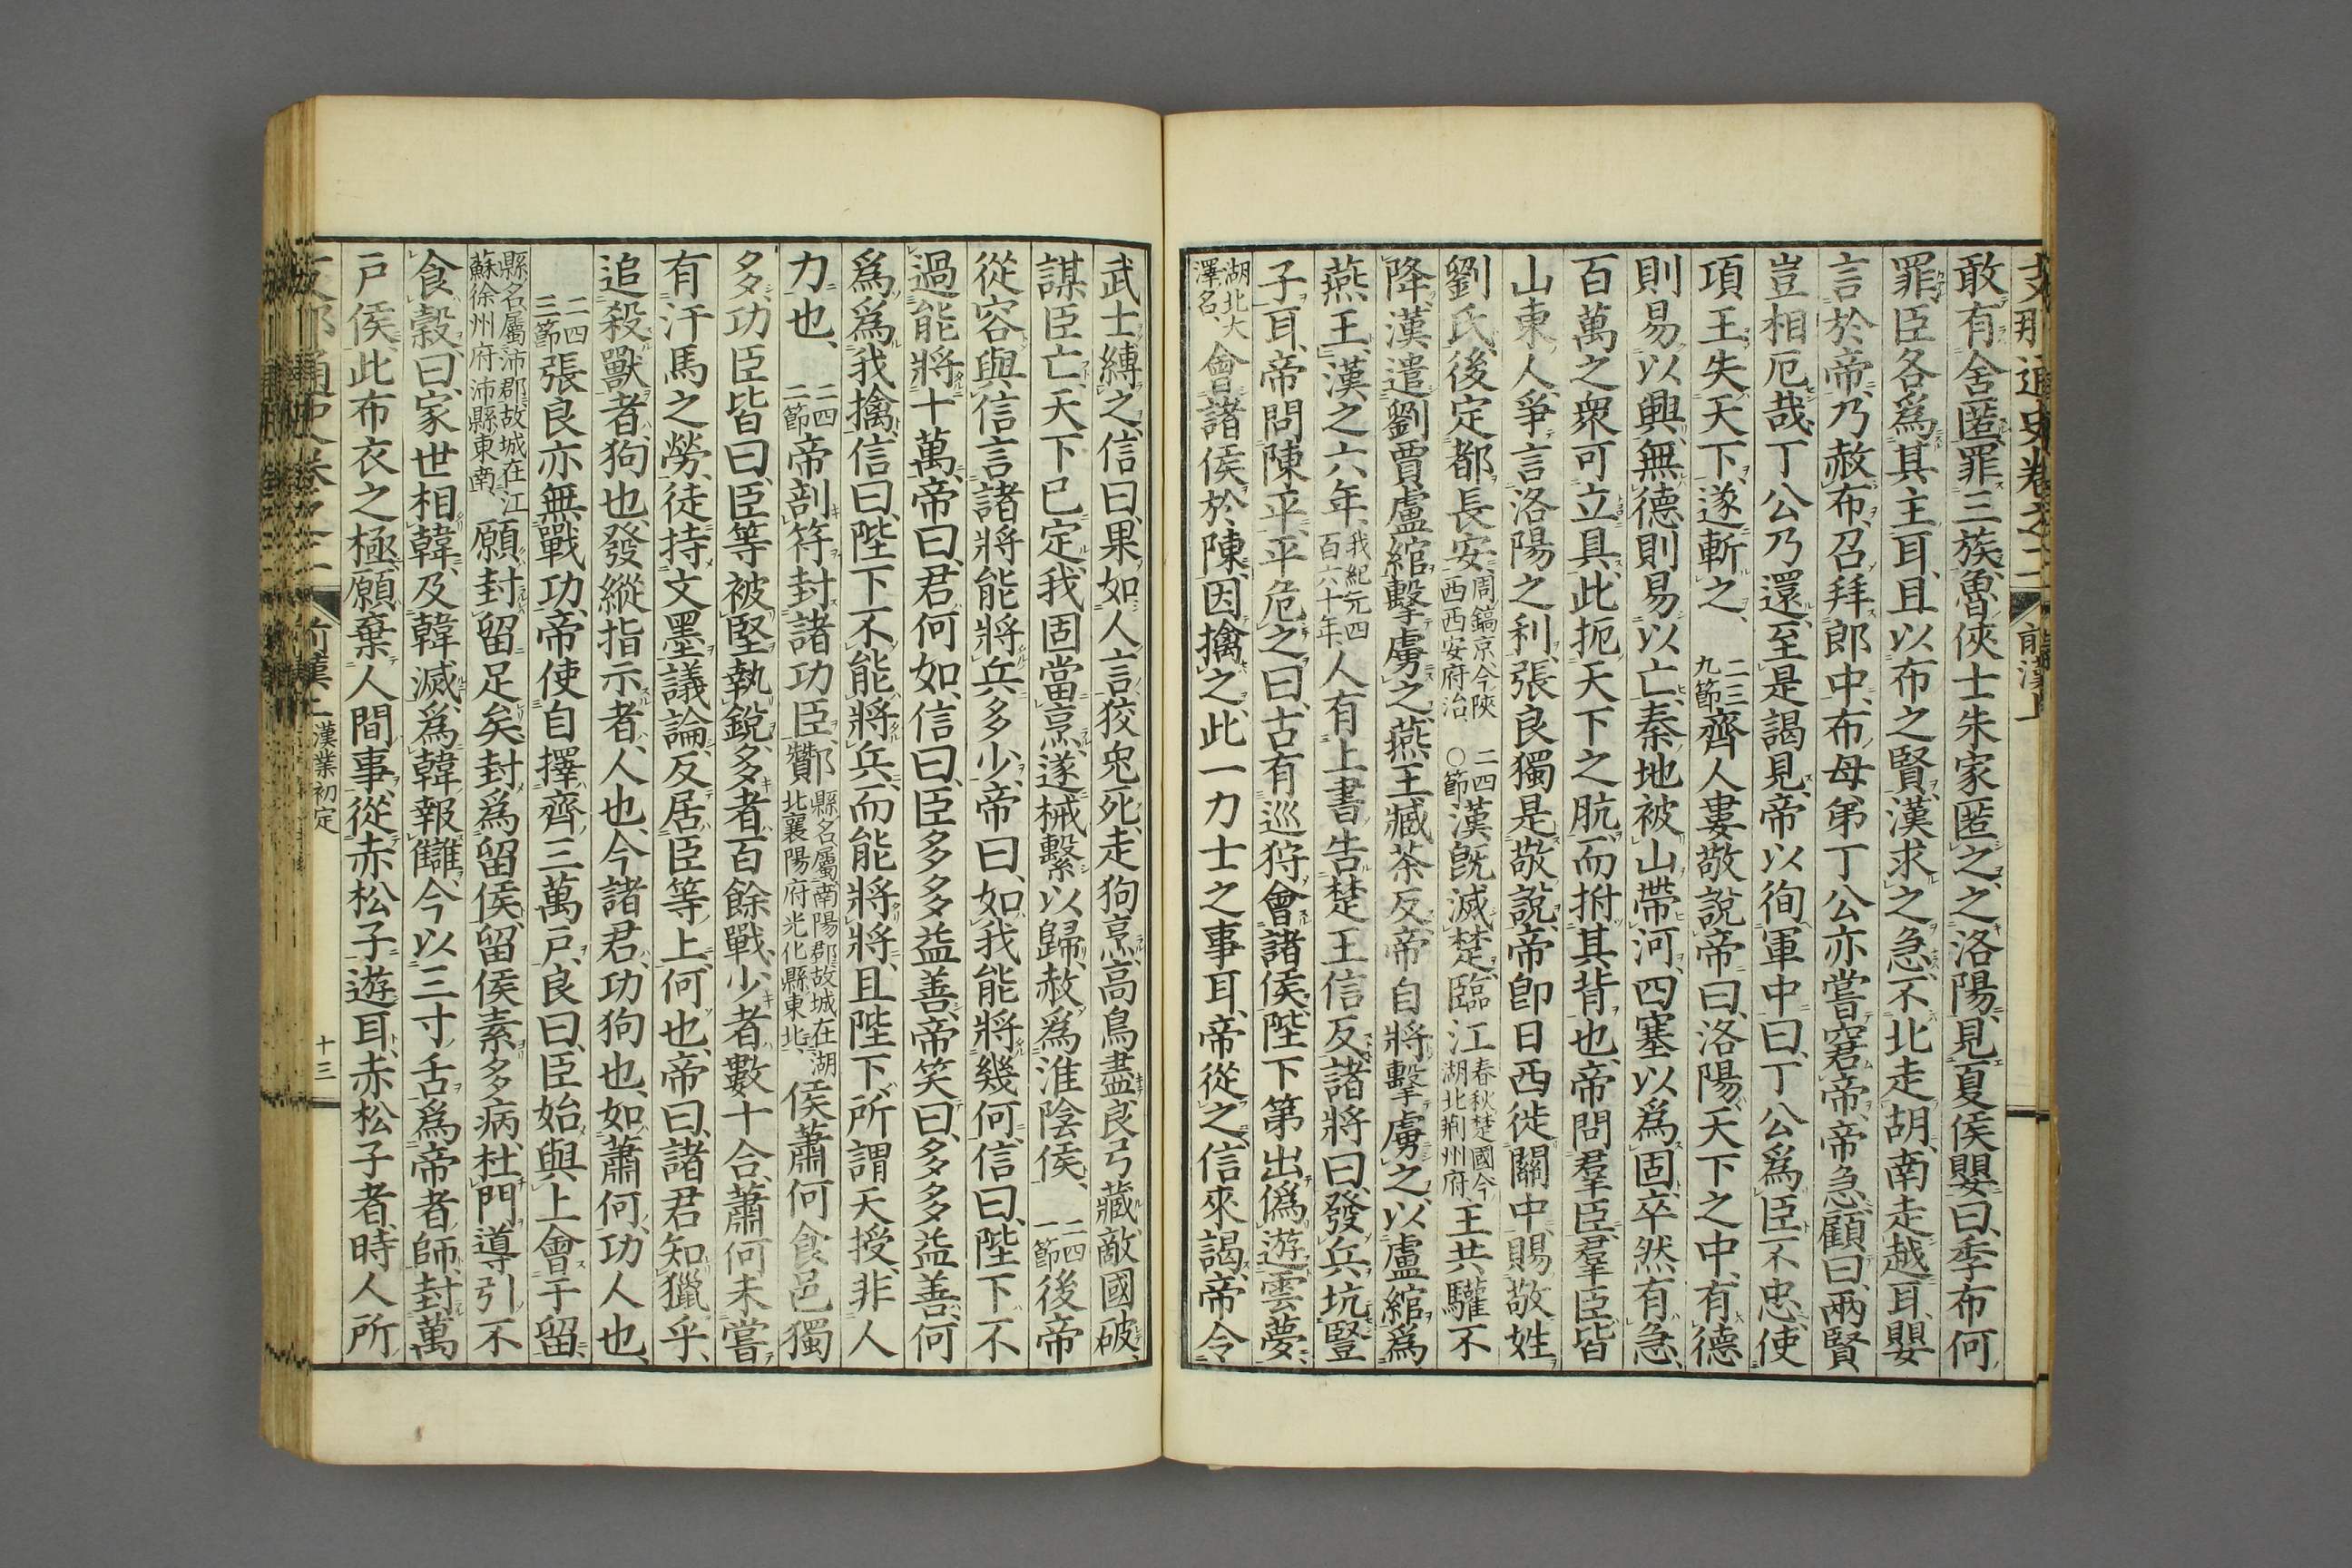 支那通史卷之二 前漢上
敢有舍匿、罪三族、魯俠士朱家匿之、之洛陽、見夏侯嬰曰、季布何
罪、臣各爲其主耳、且以布之賢、漢求之急、不北走胡、南走越耳、嬰
言於帝、乃赦布、召拜郎中、布母弟丁公亦嘗窘帝、帝急、顧曰、兩賢
豈相厄哉、丁公乃還、至是謁見、帝以徇軍中曰、丁公爲臣不忠、使
項王失天下、遂斬之、二三九節齊人婁敬說帝曰、洛陽天下之中、有德
則易以興、無德則易以亡、秦地被山帶河、四塞以爲固、卒然有急、
百萬之衆可立具、此扼天下之肮、而拊其背也、帝問羣臣、羣臣皆
山東人、爭言洛陽之利、張良獨是敬說、帝卽日西徙關中、賜敬姓
劉氏、後定都長安、周鎬京、今陝西西安府治、二四〇節漢旣滅楚、臨江春秋楚國、今湖北荊州府、王共驩不
降、漢遣劉賈、盧綰擊虜之、燕王臧荼反、帝自將擊虜之、以盧綰爲
燕王、漢之六年、我紀元四百六十年、人有上書告楚王信反、諸將曰、發兵坑豎
子耳、帝問陳平、平危之曰、古有巡狩會諸侯、陛下第出僞遊雲夢、
湖北大澤名、會諸侯於陳、因擒之、此一力士之事耳、帝從之、信來謁、帝令
武士縛之、信曰、果如人言、狡兔死、走狗烹、高鳥盡、良弓藏、敵國破、
謀臣亡、天下已定、我固當烹、遂械繫以歸、赦爲淮陰侯、二四一節後帝
從容與信言諸將能將兵多少、帝曰、如我能將幾何、信曰、陛下不
過能將十萬、帝曰、君何如、信曰、臣多多益善、帝笑曰、多多益善、何
爲爲我擒、信曰、陛下不能將兵、而能將將、且陛下所謂天授、非人
力也、二四二節帝剖符封諸功臣、酇縣名、屬南陽郡、故城在湖北襄陽府光化縣東北、侯蕭何食邑獨
多、功臣皆曰、臣等被堅執銳、多者百餘戰、少者數十合、蕭何未嘗
有汗馬之勞、徒持文墨議論、反居臣等上、何也、帝曰、諸君知獵乎、
追殺獸者狗也、發縱指示者人也、今諸君功狗也、如蕭何功人也、
二四三節張良亦無戰功、帝使自擇齊三萬戶、良曰、臣始與上會于留、
縣名、屬沛郡、故城在江蘇徐州府沛縣東南、願封留足矣、封爲留侯、留侯素多病、杜門導引、不
食穀曰、家世相韓、及韓滅、爲韓報讎、今以三寸舌、爲帝者師、封萬
戶侯、此布衣之極、願棄人間事、從赤松子遊耳、赤松子者、時人所
前漢上 漢業初定 十三